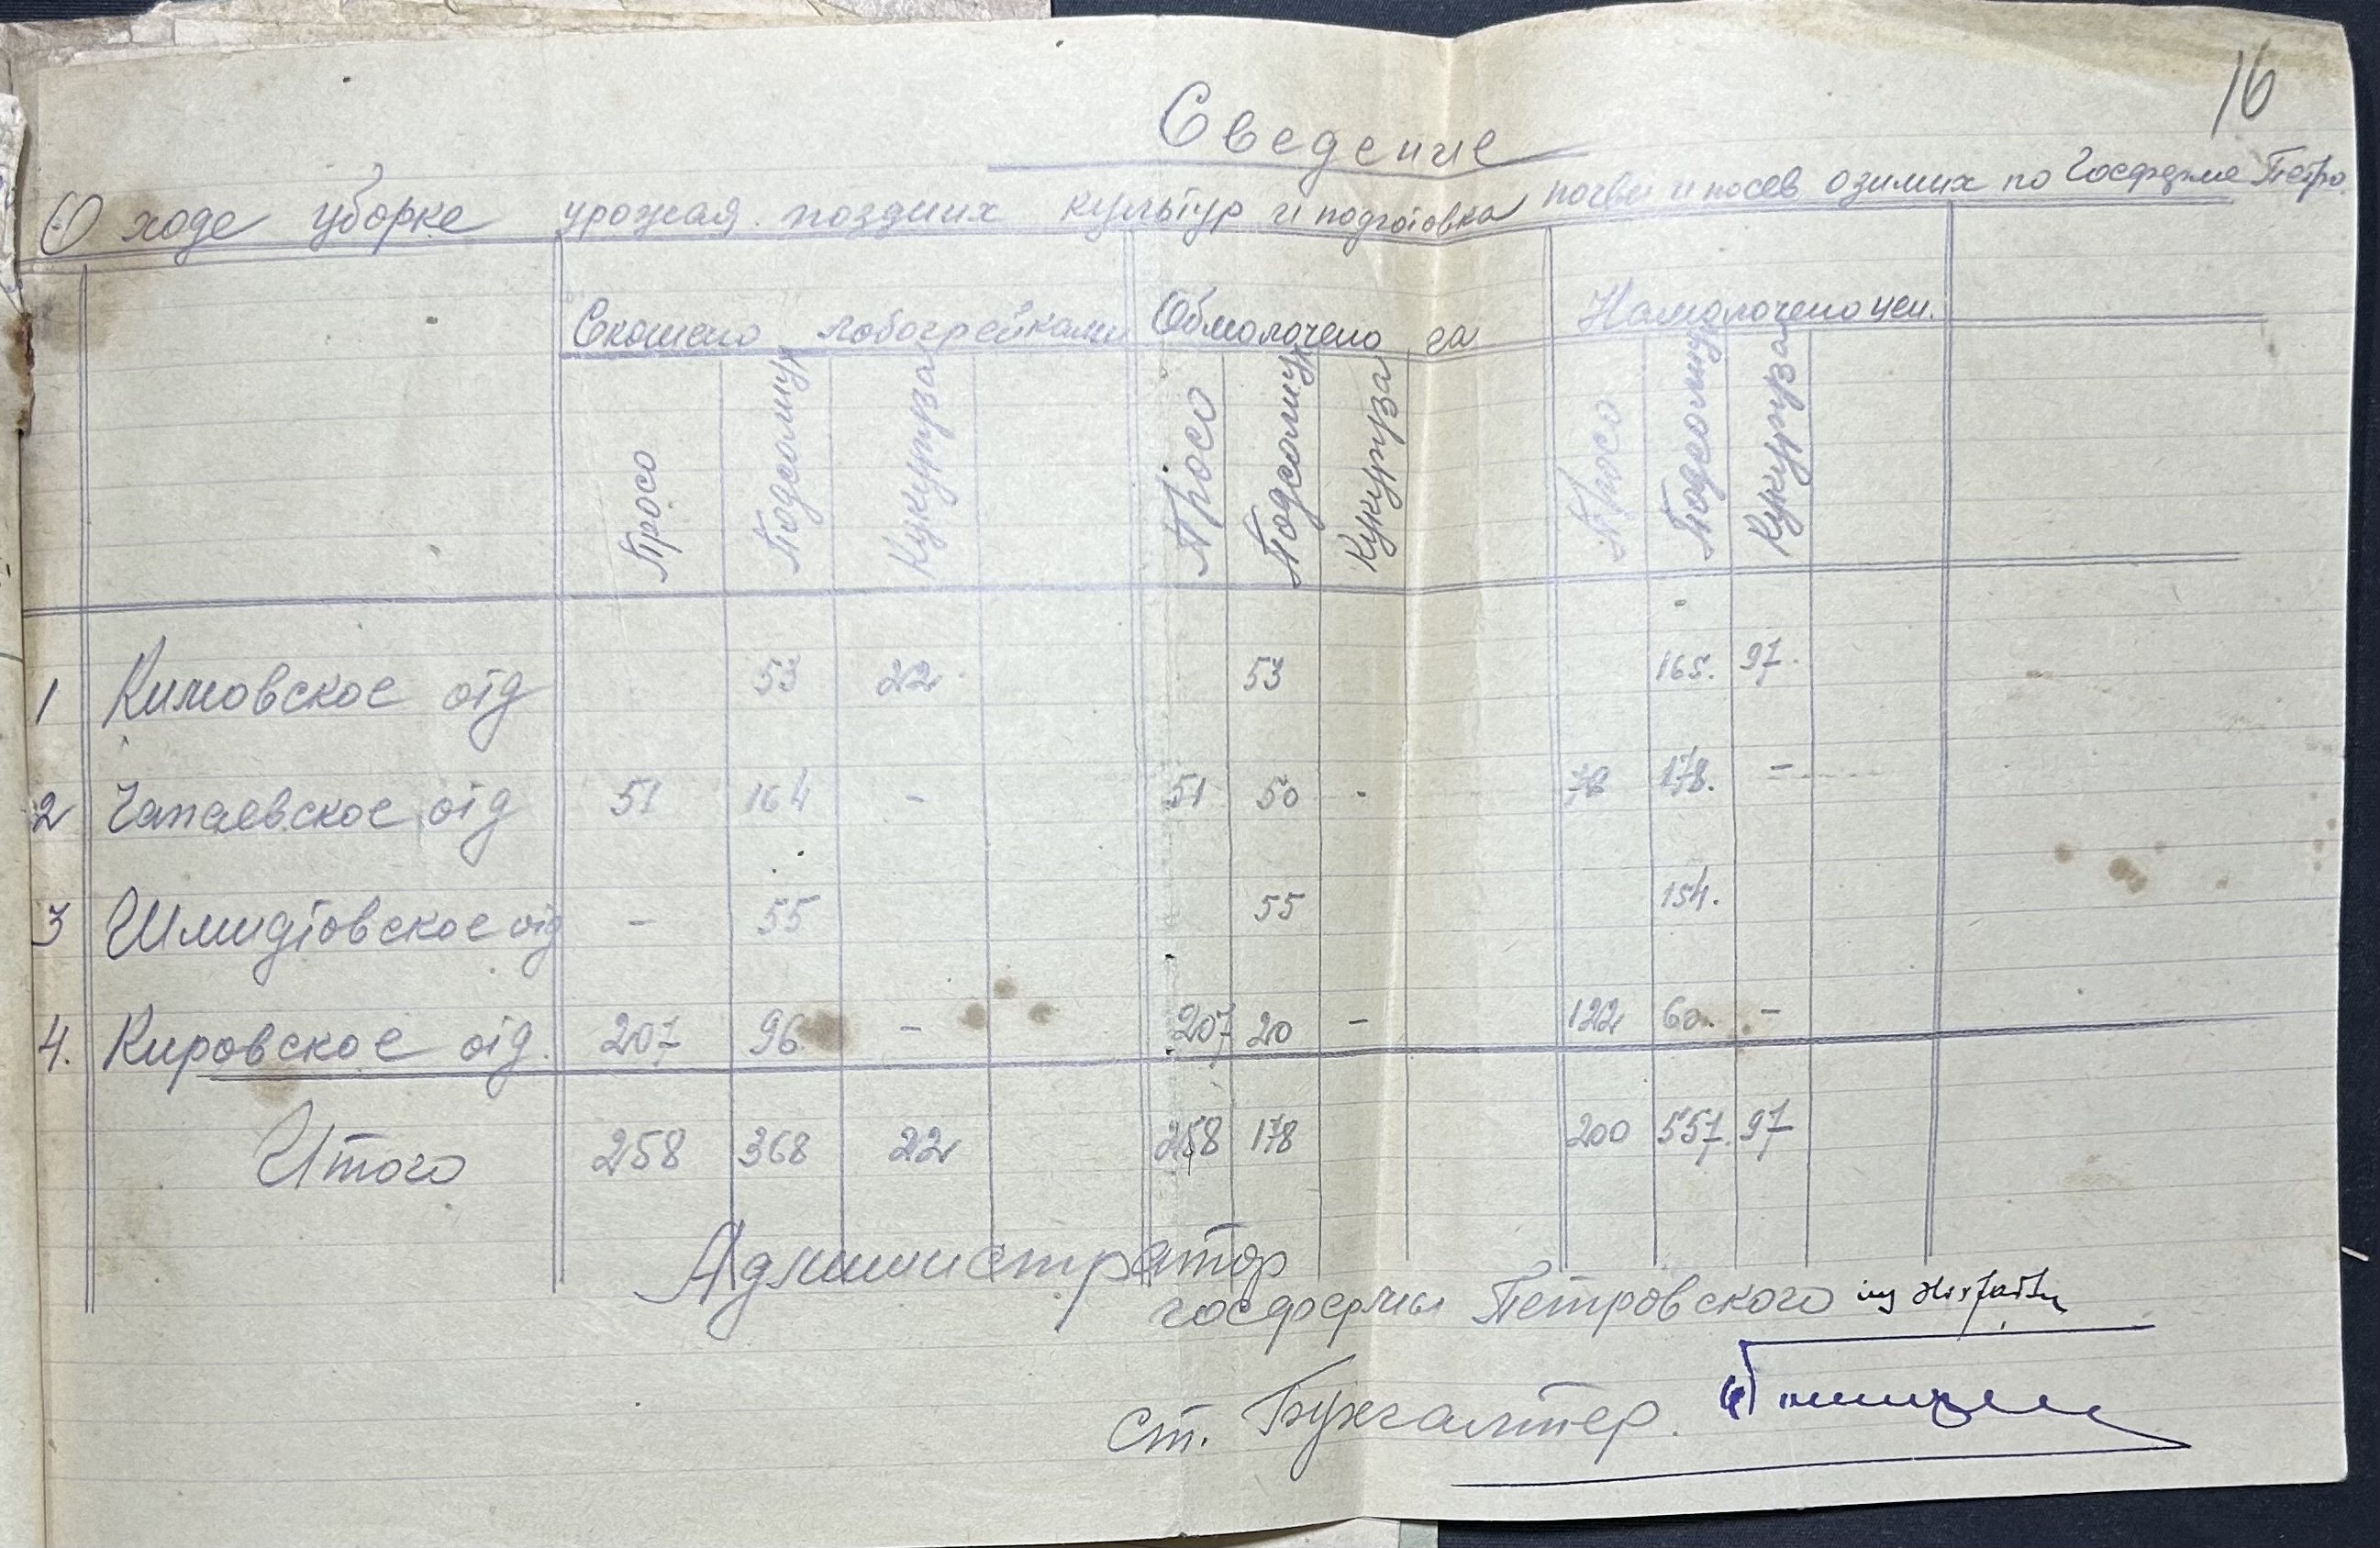 16
Сведение
О ходе уборке урожая поздних культур и подготовка почвы и посев озимих по Госферме Петро.
Скошено лобогрейками Обмолочено га Намолочено цен.
Просо Подсолнух Кукуруза Просо Подсолнух Кукуруза Просо Подсолнух Кукуруза
1 Кимовское отд 53 22 53 165. 97.
2 Чапаевское отд 51 164 - 51 50 - 78 178. -
3 Шмидтовское отд - 55 55 154.
4. Кировское отд. 207 96 - 207 20 - 122 60. -
Итого 258 368 22 258 178 200 557. 97
Администратор
госфермы Петровского
ст. Бухгалтер.